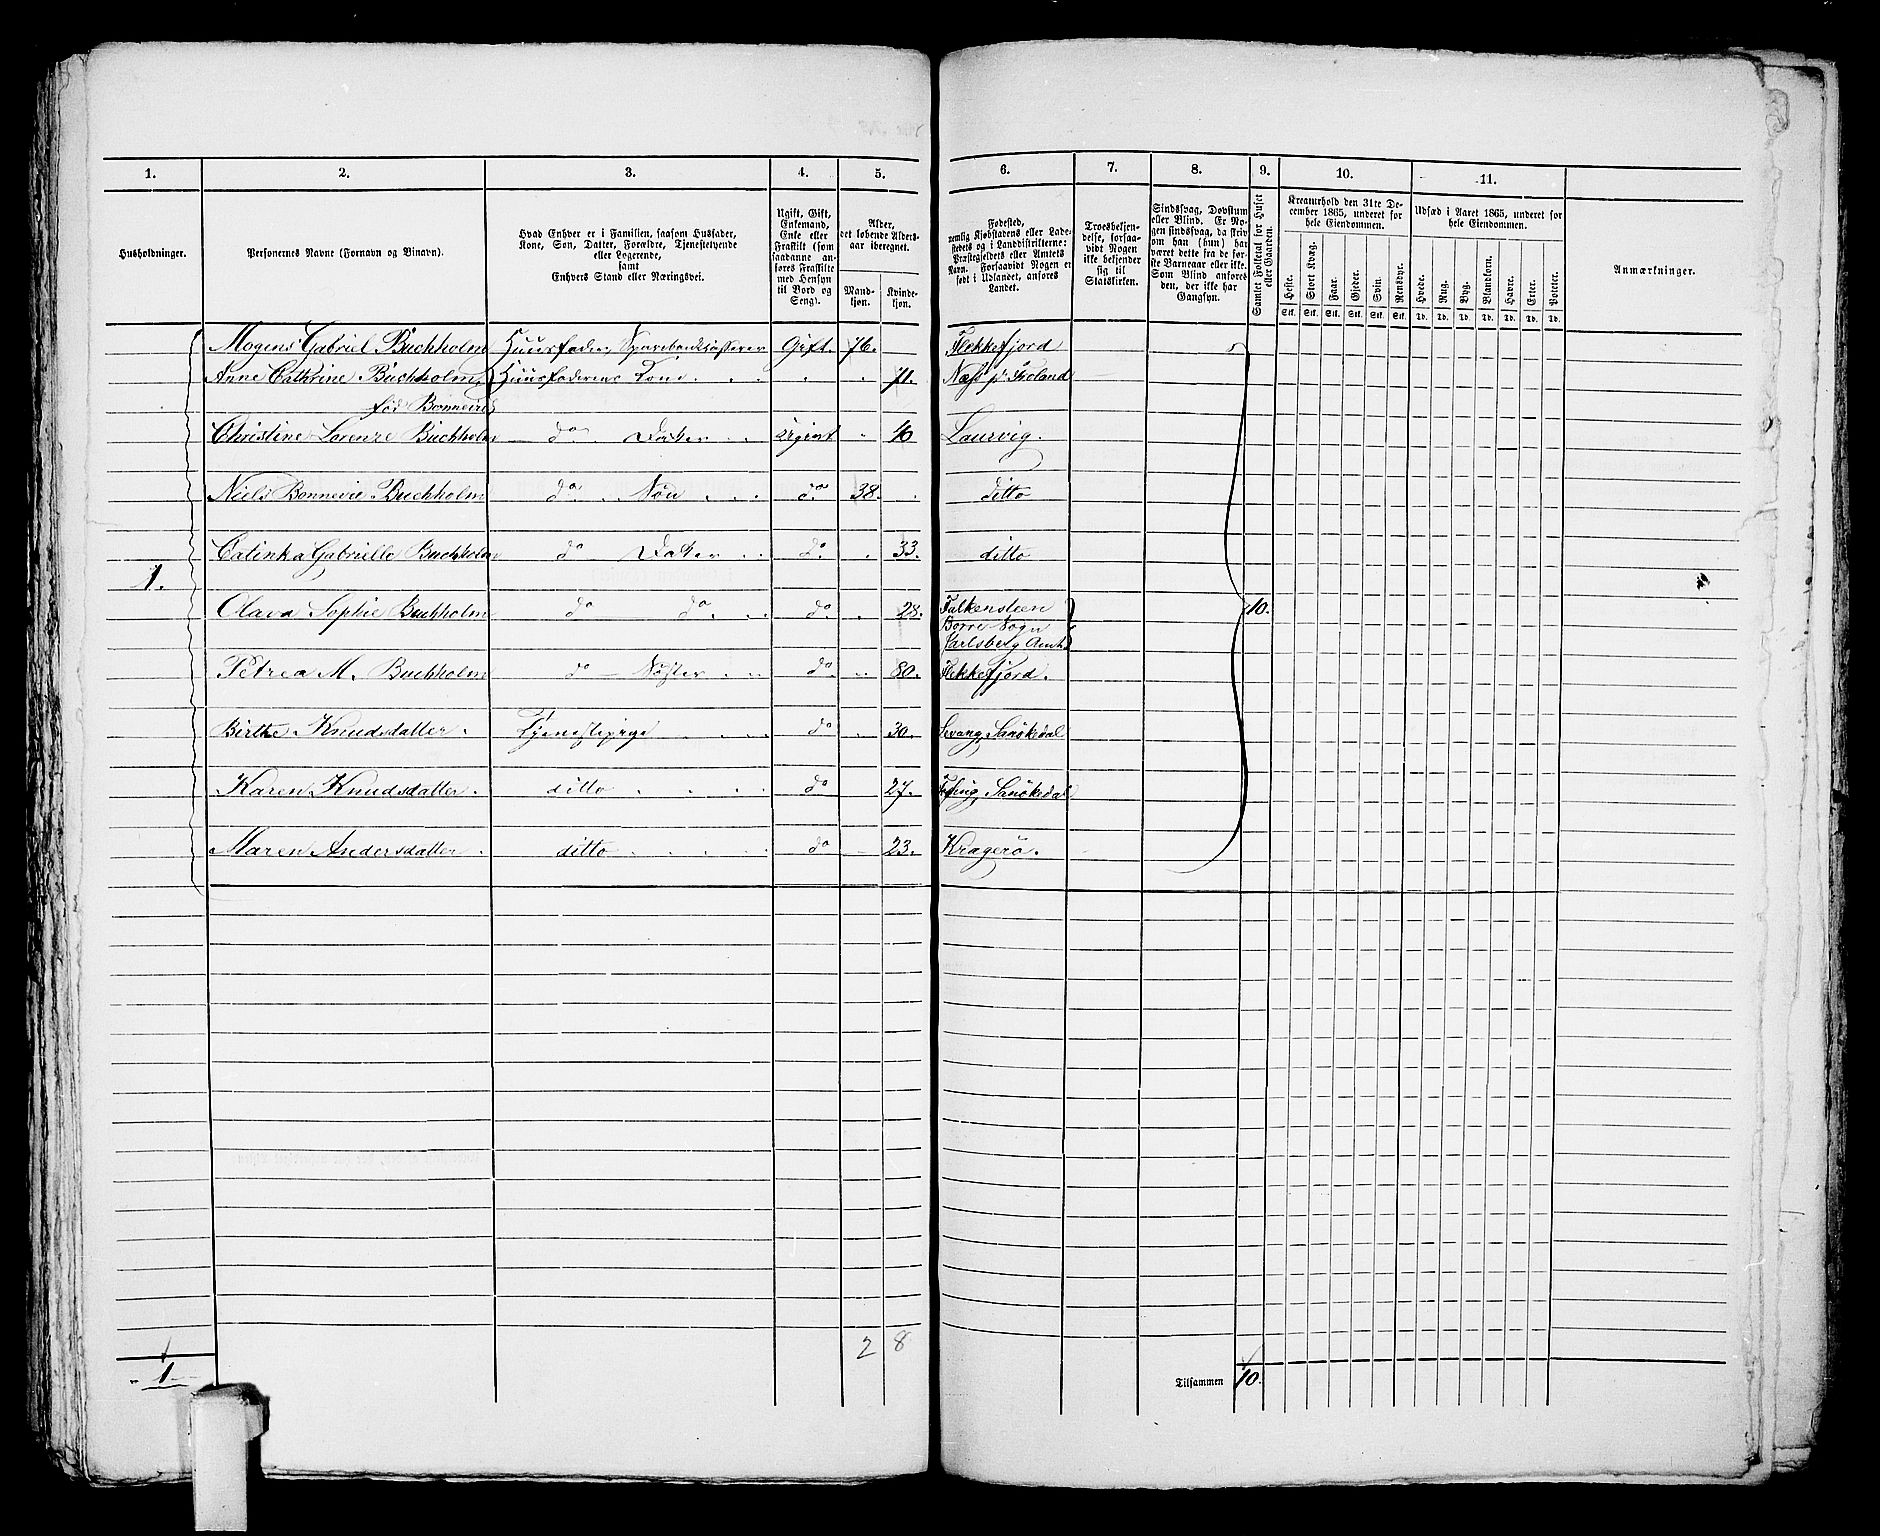 1. 2. 3. 4. 5. 6. 7. 8. 9. 10. 11.
Husholdninger.
Personernes Navne (Fornavn og Binavn).
Hvad Enhver er i Familien, saasom Husfader,
Kone, Søn, Datter, Forældre, Tjenestetyende
eller Logerende,
samt
Enhvers Stand eller Næringsvei.
Ugift, Gift,
Enkemand,
Enke eller
Fraskilt (som
saadanne an-
føres Fraskilte
med Hensyn
til Bord og
Seng).
Alder,
det løbende Alders-
aar iberegnet.
Mand-
kjøn.
Kvinde-
kjøn.
Fødested,
nemlig Kjøbstadens eller Lade-
stedets og i Landdistrikterne:
Præstegjeldets eller Amtets
Navn. Forsaavidt Nogen er
født i Udlandet, anføres
Landet.
Troesbekjen-
delse, forsaa-
vidt Nogen
ikke bekjender
sig til
Statskirken.
Sindssvag, Døvstum
eller Blind. Er No-
gen sindssvag, da skriv
om han (hun) har
været dette fra de før-
ste Barneaar eller ikke.
Som Blind anføres
den, der ikke har
Gangsyn.
Samlet Folketal for Huset
eller Gaarden.
Kreaturhold den 31te De-
cember 1865, underet for
hele Eiendommen.
Heste. Stort Kvæg. Faar. Gjeder. Svin. Rensdyr.
Stk. Stk. Stk. Stk. Stk. Stk.
Udsæd i Aaret 1865, underet for
hele Eiendommen.
Hvede. Rug. Byg. Blandkorn. Havre. Erter. Poteter.
Td. Td. Td. Td. Td. Td. Td.
Anmærkninger.
Mogens Gabriel Buchholm Huusfader, Sparebankkasserer Gift. 76. Flekkefjord
Anne Cathrine Buchholm, Huusfaderens Kone 71. Næss p Tveland
fød Bonnevie
Christine Lorenze Buchholm do Datter Ugivt 40 Laurvig.
Niels Bonnevie Buchholm do Søn do 38. ditto
Catinka Gabrielle Buchholm do Datter do 33. ditto
1.
Olava Sophie Buchholm do do do 28. Falkensteen 10.
Borre Sogn
Jarlsberg Amt
Petrea M. Buchholm do Søster do 80. Flekkefjord.
Birthe Knudsdatter. Tjenestepige do 30. Levang, Sanökedal
Karen Knudsdatter. ditto do 27. Sanökedal
Maren Andersdatter ditto do 23. Kragerö.
2 8
1
Tilsammen 10.